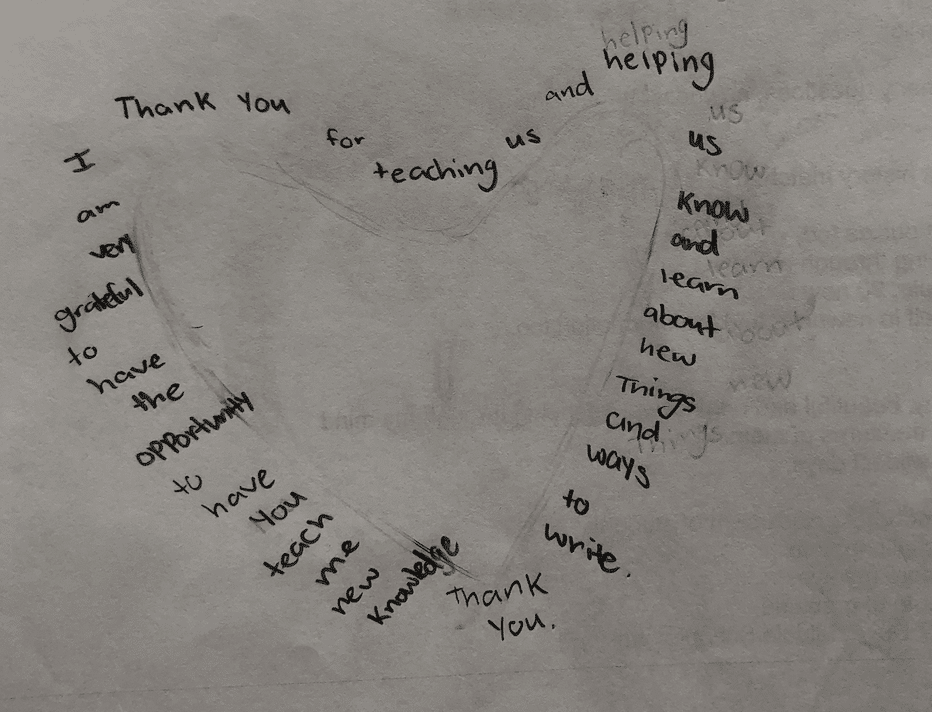 Thank You
for
teaching
us
and
helping
us
know
and
learn
about
new
Things
and
ways
to
write.
I
am
very
grateful
to
have
the
opportunity
to
have
You
teach
me
new
knowledge
Thank
You.
helping
us
know
about
learn
about
new
Things